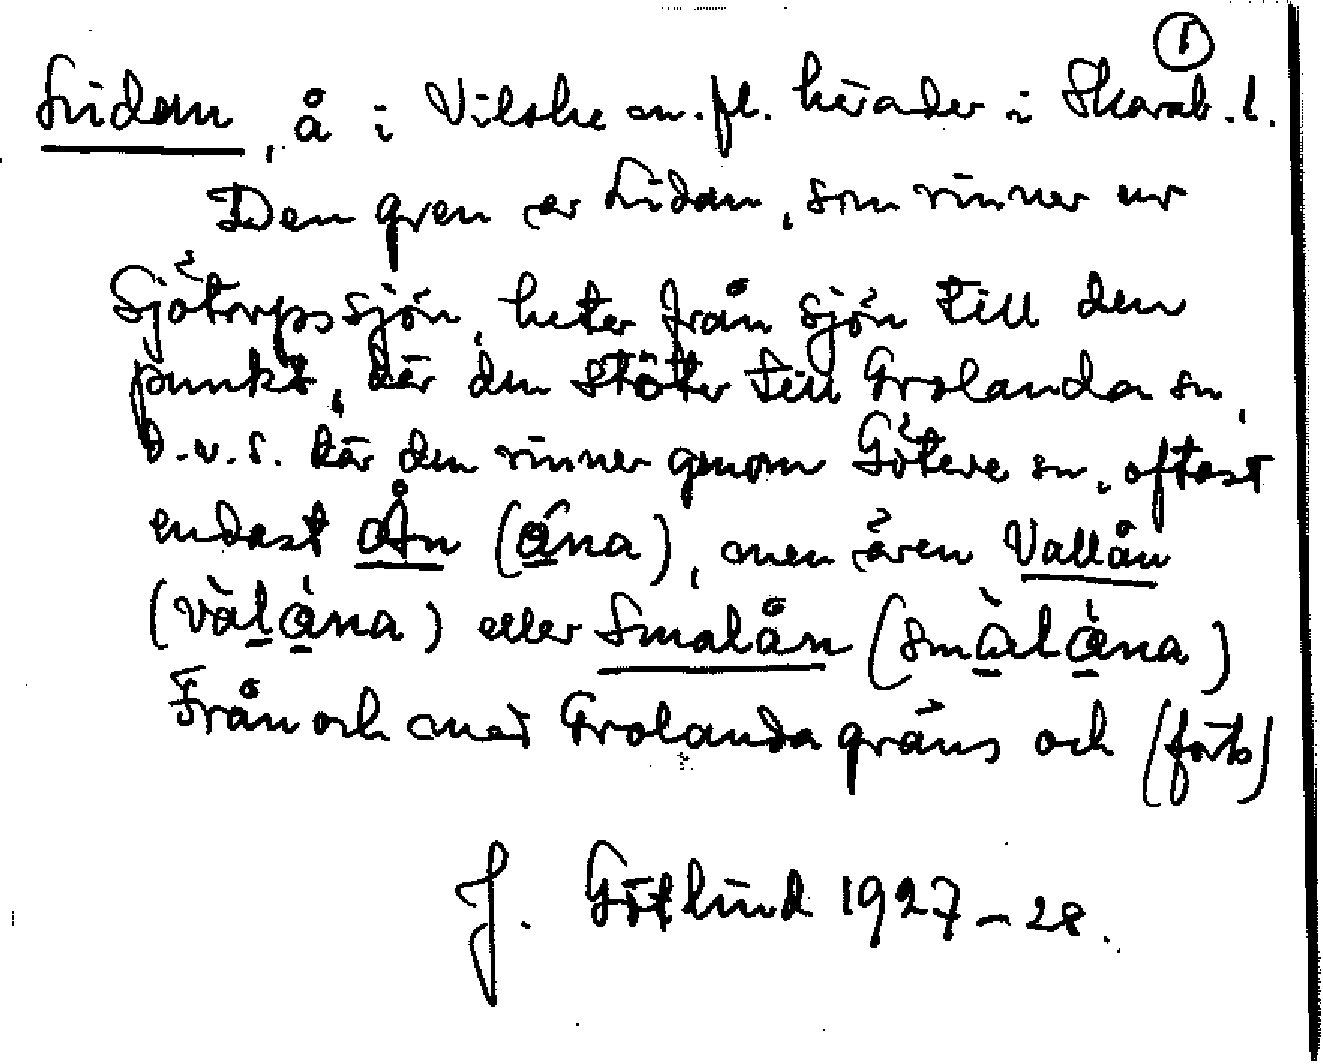 ①
Lidan, å i Vilske m.fl. härader i Skarab. l.
Den gren av Lidan, som rinner ur
Sjötorpssjön, heter från sjön till den
punkt, där den stöter till Grolanda sn,
d.v.s. där den rinner genom Göteve sn, oftast
endast Ån (åna), men även Vallån
(vàlåna) eller Smalån (smàlåna)
Från och med Grolanda gräns och (forts)
J. Götlind 1927-28.